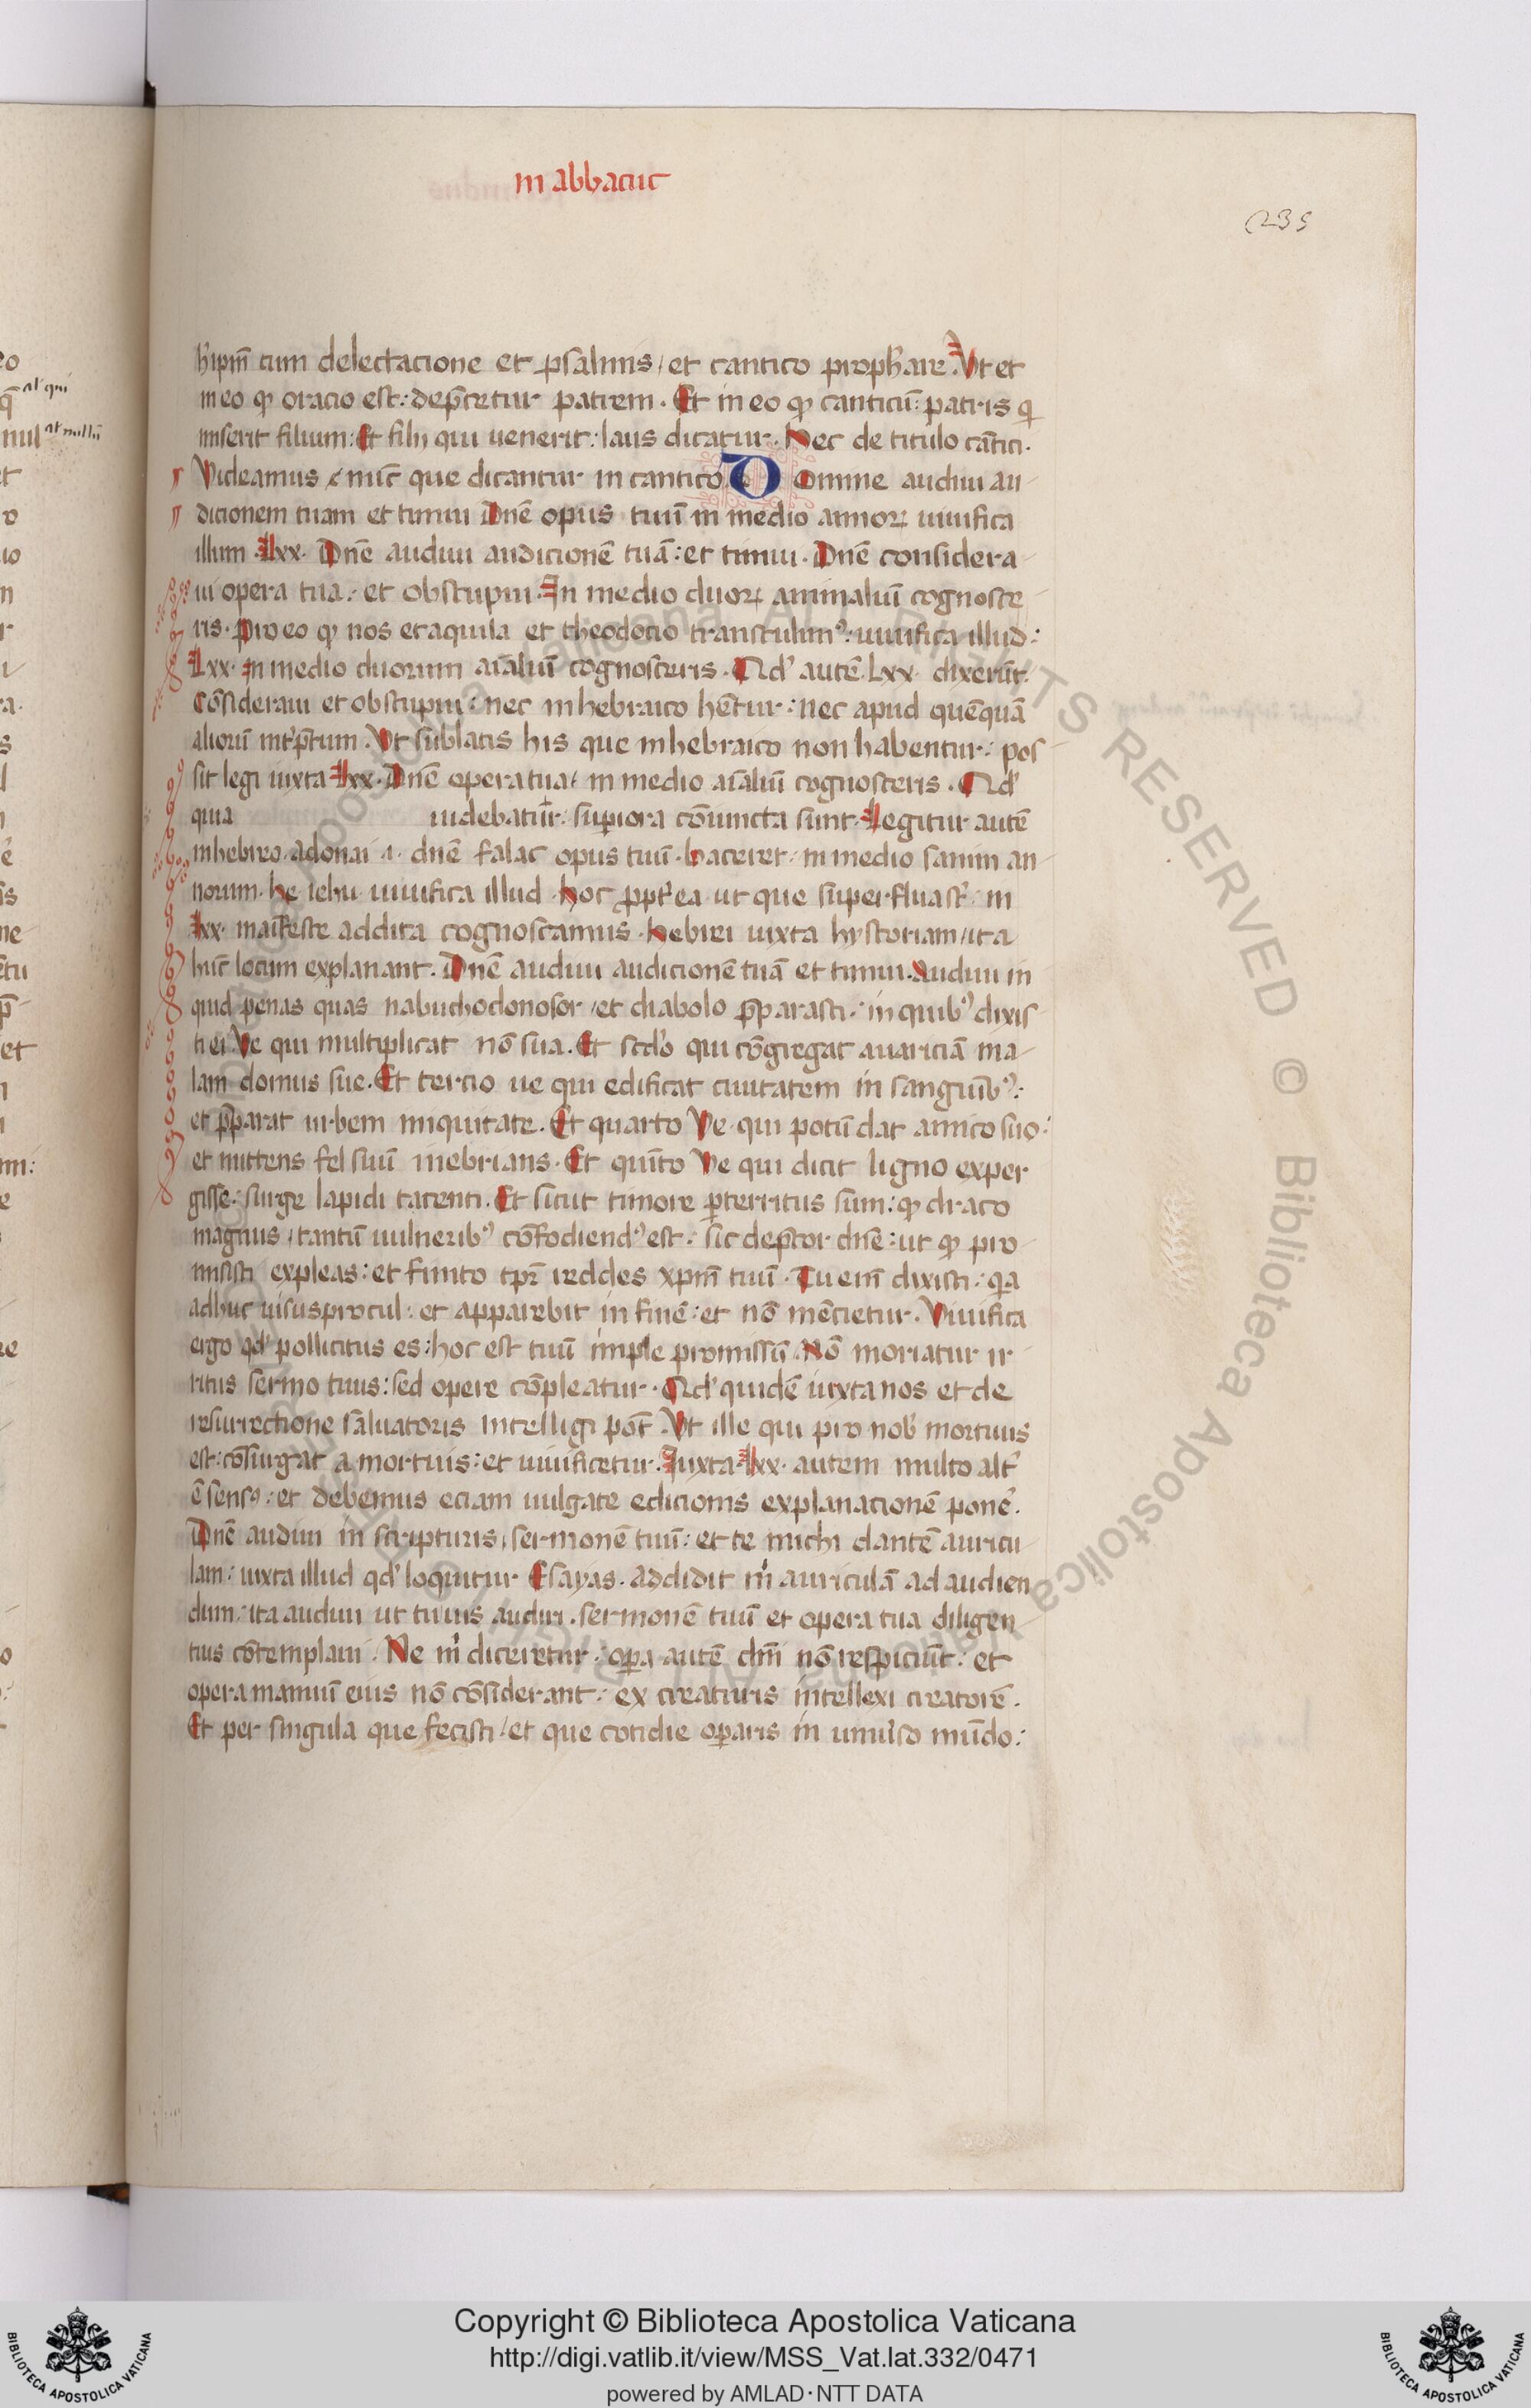 in abbacuc
235
h'ipm̄ cum delectacione et psalmis / et cantico proph'are. Ut et
in eo qꝫ oracio est: dep̄cetur patrem. Et in eo qꝫ canticū: patris q
miserit filium: Et filij qui uenerit: laus dicatur. Hec de titulo cātici.
Videamus / nūc que dicantur in cantico. Domine audiui au-
dicionem tuam et timui Dn̄e opus tuū in medio annoꝝ uiuifica
illum. Lxx. Dn̄e audiui audicionē tuā: et timui. Dn̄e considera-
ui opera tua: et obstupui. In medio duoꝝ animaliū cognosce-
ris. Pro eo qꝫ nos et aquila et theodocio transtulim': uiuifica illud:
Lxx. In medio duorum aīaliū cognosceris. Qd' autē Lxx. dixerūt.
Cōsideraui et obstupui: nec in hebraico hētur: nec apud quēquā
aliorū int'p̄tum. Ut sublatis his que in hebraico non habentur: pos-
sit legi iuxta Lxx. Dn̄e opera tua / in medio aīaliū cognosceris. Qd'
quia uidebatūr. supiora cōiuncta sunt. Legitur autē
in hebreo. adonai .i. dn̄e falac opus tuū. baceret. in medio sanim an-
norum. he iehu uiuifica illud. hoc ppt'ea ut que superflua st̄ in
Lxx. maīfeste addita cognoscamus. hebrei iuxta hystoriam / ita
hūc locum explanant. Dn̄e audiui audicionē tuā et timui. Audiui in-
quid penas quas nabuchodonosor / et diabolo p̄parasti: in quib' dixis
ti ei. Ve qui multiplicat nō sua. Et scd'o qui cōgregat auariciā ma-
lam domus sue. Et tercio ue qui edificat ciuitatem in sanguīb':
et p̄parat urbem iniquitate. Et quarto Ve qui potū dat amico suo:
et mittens fel suū inebrians. Et quīto Ve qui dicit ligno exper
gisse: surge lapidi tacenti. Et sicut timore pterritus sum: qꝫ draco
magnus / tantū uulnerib' cōfodiend' est: sic dep̄cor dn̄e: ut qꝫ pro
misisti expleas: et finito tp̄r reddes xpm̄ tuū. Tu enī dixisti: qa
adhuc uisus procul: et apparebit in finē: et nō mētietur. Viuifica
ergo qd' pollicitus es: hoc est tuū imple promissū. Nō moriatur ir-
ritus sermo tuus: sed opere cōpleatur. Qd' quidē iuxta nos et de
resurrectione saluatoris intelligi pōt. Ut ille qui pro nob' mortuus
est: cōsurgat a mortuis: et uiuificetur. Iuxta Lxx. autem multo alt'
ē sens': et debemus eciam uulgate edicionis explanacionē pone'.
Dn̄e audiui in scripturis / sermonē tuū: et te michi dantē auricu-
lam: iuxta illud qd' loquitur Esayas. addidit m' auriculā ad audien
dum: ita audiui ut tuus audiri. sermonē tuū et opera tua diligen-
tius cōtemplaui. Ne m' diceretur: opa autē dn̄i nō respiciūt: et
opera manuū eius nō cōsiderant: ex creaturis intellexi creatorē.
Et per singula que fecisti / et que cotidie oparis in uniu'so mūdo:
Copyright © Biblioteca Apostolica Vaticana
http://digi.vatlib.it/view/MSS_Vat.lat.332/0471
powered by AMLAD·NTT DATA